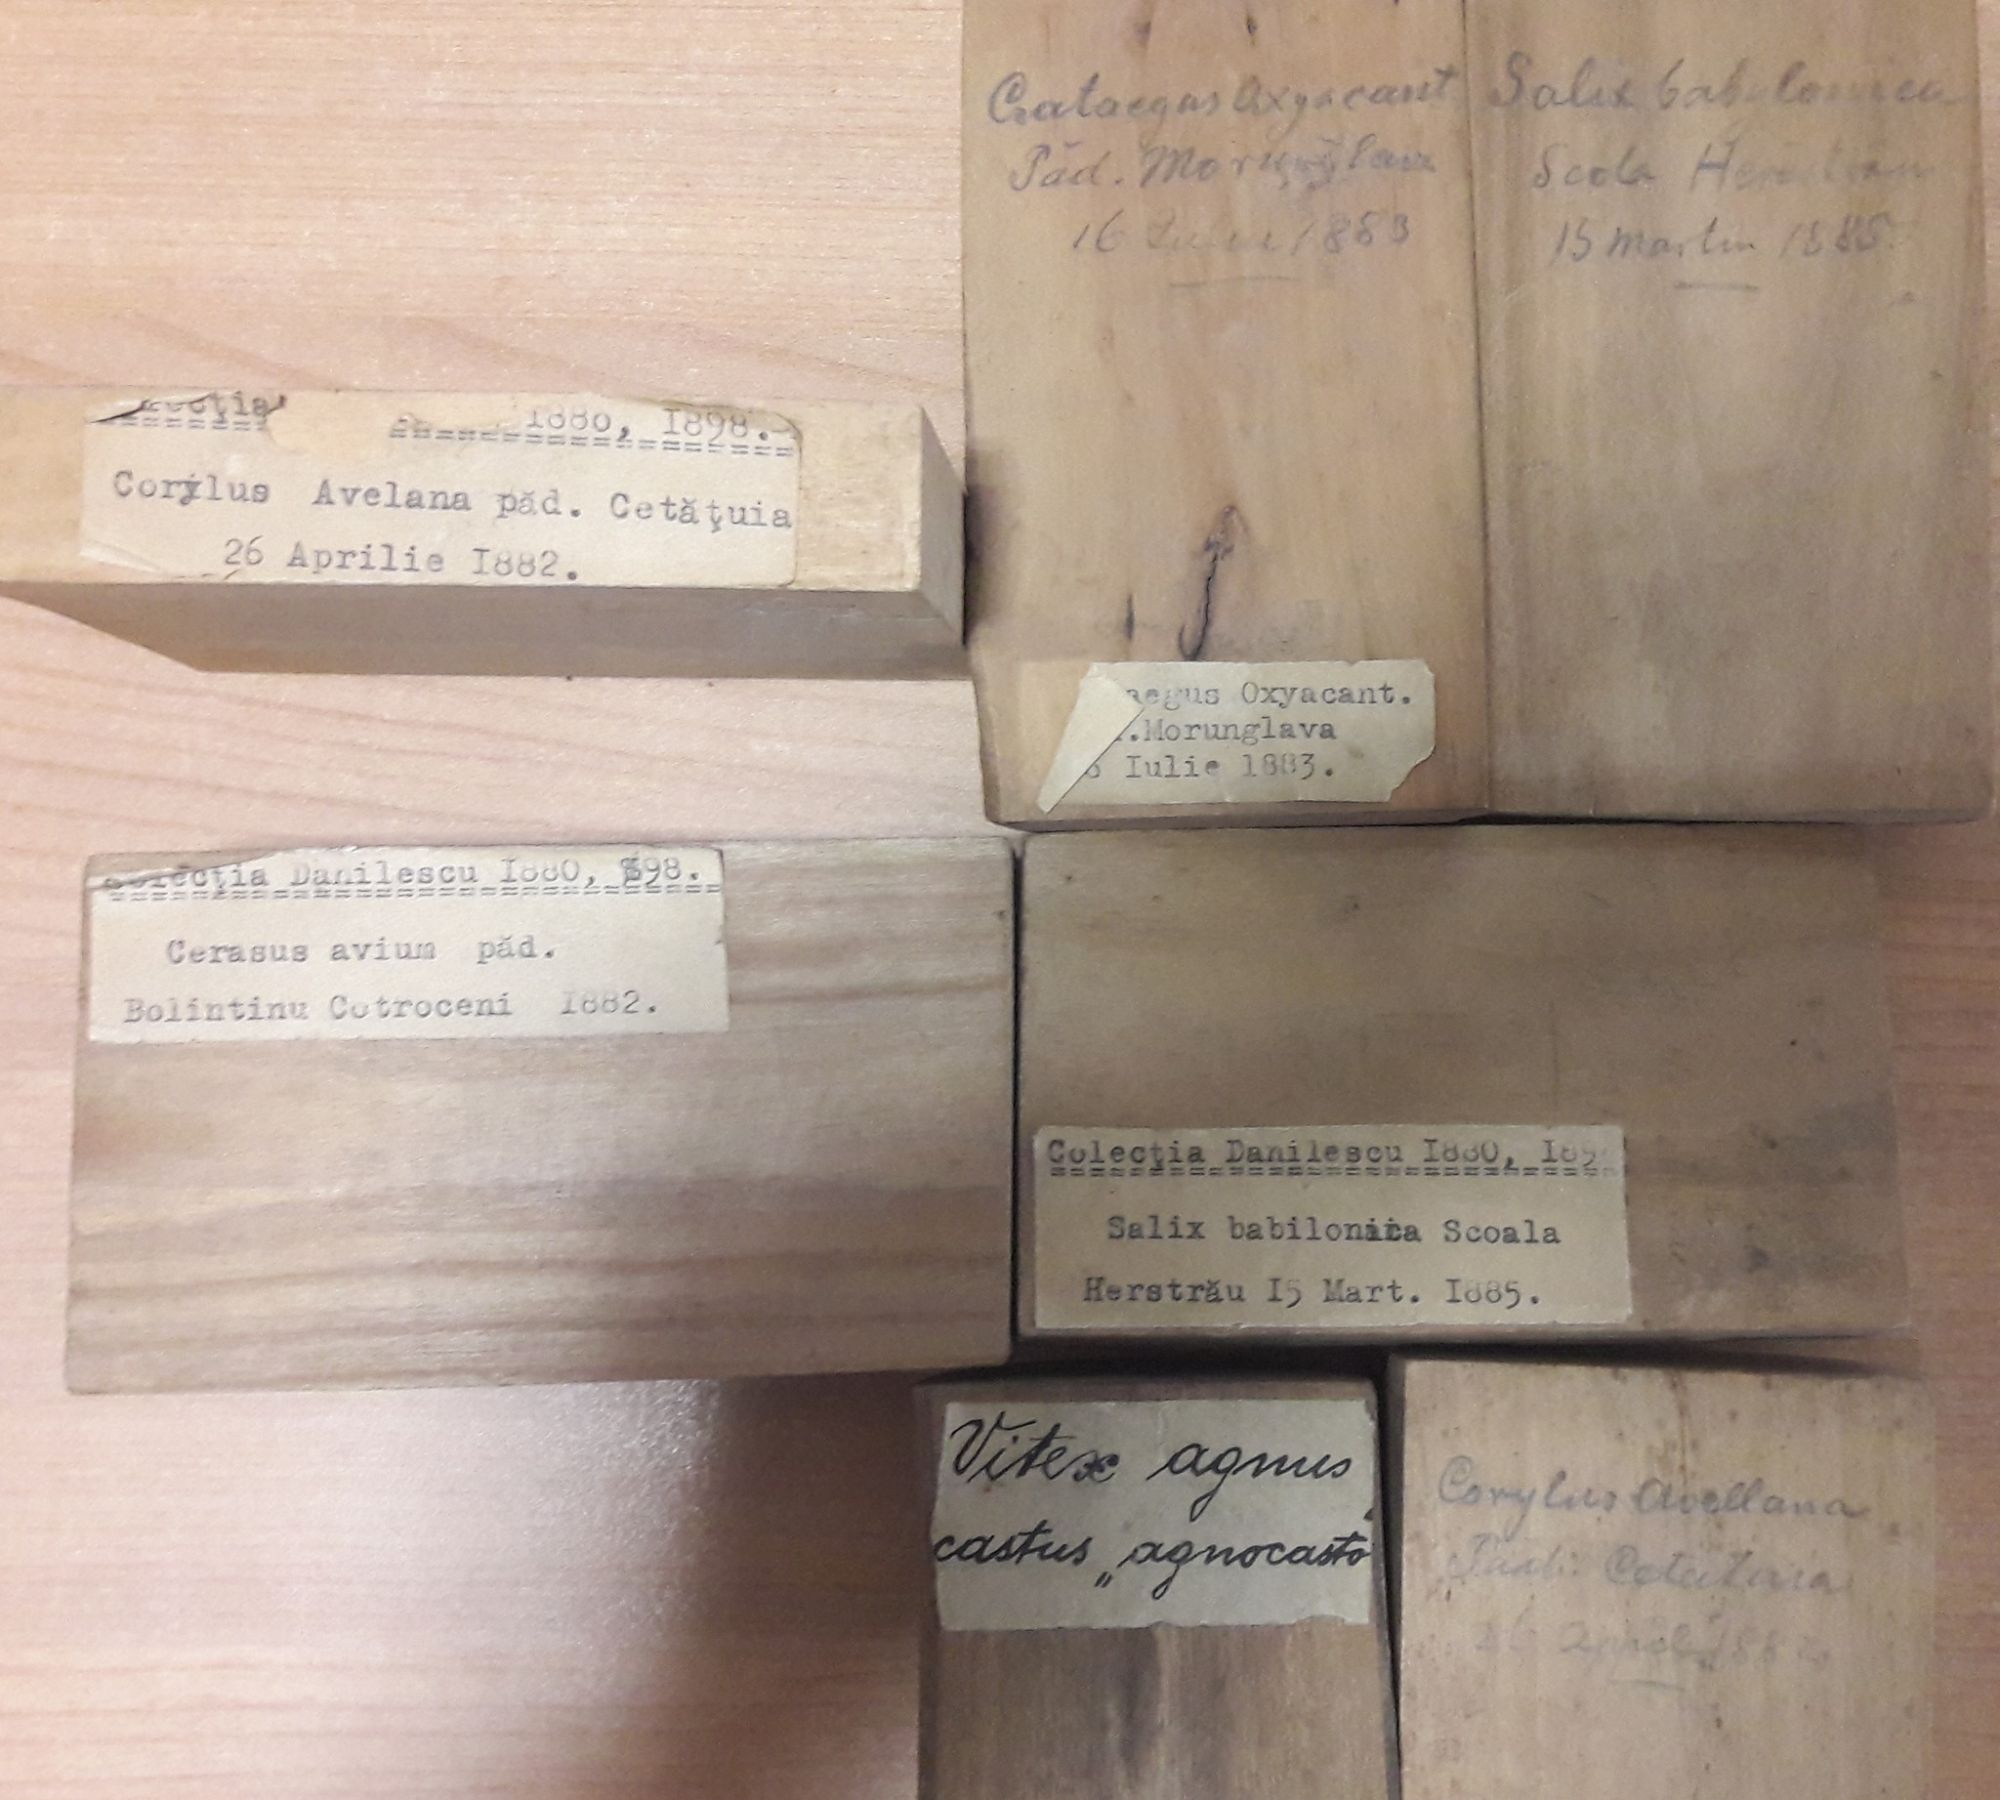 Crataegus Oxyacant
Păd. Morunglava
16 1883
Salix babylonica
Scola
15 Martiu 1885
1880, 1898.
Corylus Avelana păd. Cetăţuia
26 Aprilie I882.
aegus Oxyacant.
.Morunglava
6 Iulie 1883.
Colecţia Danilescu I880, 898.
Cerasus avium păd.
Bolintinu Cotroceni I882.
Colecţia Danilescu I880, I89
Salix babilonica Scoala
Herstrău I5 Mart. I885.
Vitex agnus
castus „agnocasto
Corylus Avellana
Cetatuia
26 1882